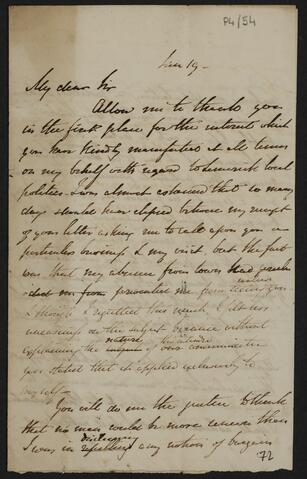 P4/54
June 19 -
My dear Sir
Allow me to thank you
in the first place for the interest which
you have kindly manifested at all times
on my behalf with regard to Limerick local
politics - I was almost ashamed that so many
days should have elapsed between my receipt
of your letter asking me to call upon you
particular business & my visit but the fact
was that my absence from town
prevented me from
& though I regretted this much I felt less
uneasiness on the subject because without
expressing the nature
you stated that it applied exclusively to
myself -
You will do me the justice to think
that no man could be more anxious than
I was in any notion of
72